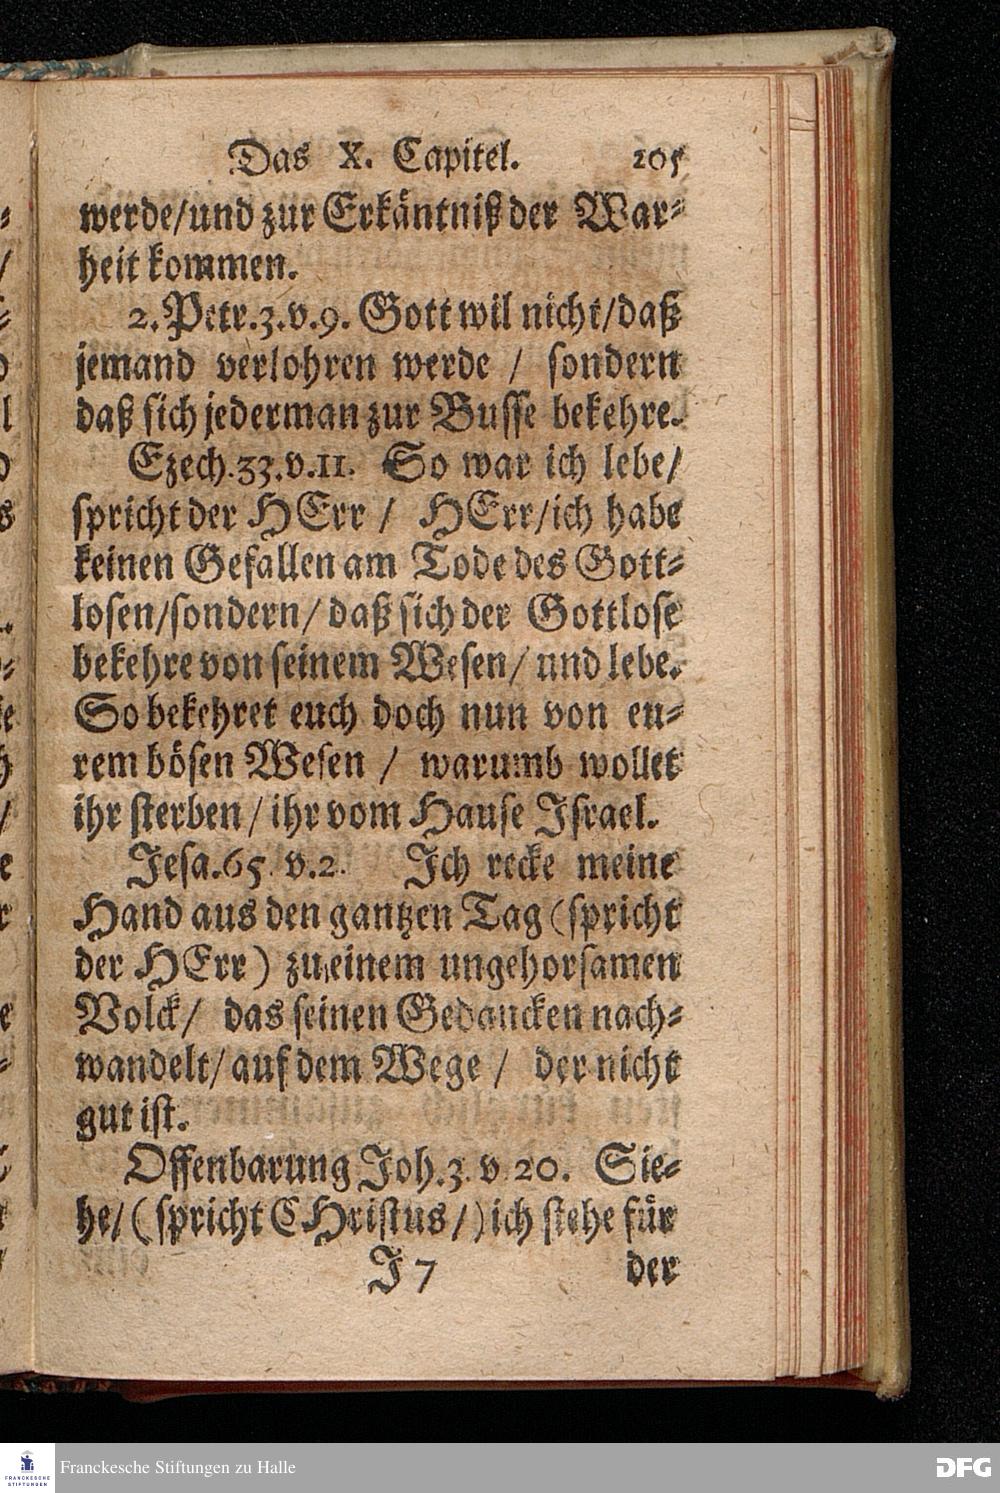 Das X. Capitel. 205
werde/und zur Erkäntniß der War-
heit kommen.
2. Petr. 3. v. 9. Gott wil nicht/daß
jemand verlohren werde / sondern
daß sich jederman zur Busse bekehre.
Ezech. 33. v. 11. So war ich lebe/
spricht der HErr / HErr/ich habe
keinen Gefallen am Tode des Gott-
losen/sondern/ daß sich der Gottlose
bekehre von seinem Wesen/ und lebe.
So bekehret euch doch nun von eu-
rem bösen Wesen / warumb wollet
ihr sterben/ ihr vom Hause Israel.
Jesa. 65. v. 2. Ich recke meine
Hand aus den gantzen Tag (spricht
der HErr) zu einem ungehorsamen
Volck/ das seinen Gedancken nach-
wandelt/ auf dem Wege / der nicht
gut ist.
Offenbarung Joh. 3. v. 20. Sie-
he/ (spricht CHristus/) ich stehe für
J 7 der
FRANCKESCHE STIFTUNGEN
Franckesche Stiftungen zu Halle
DFG